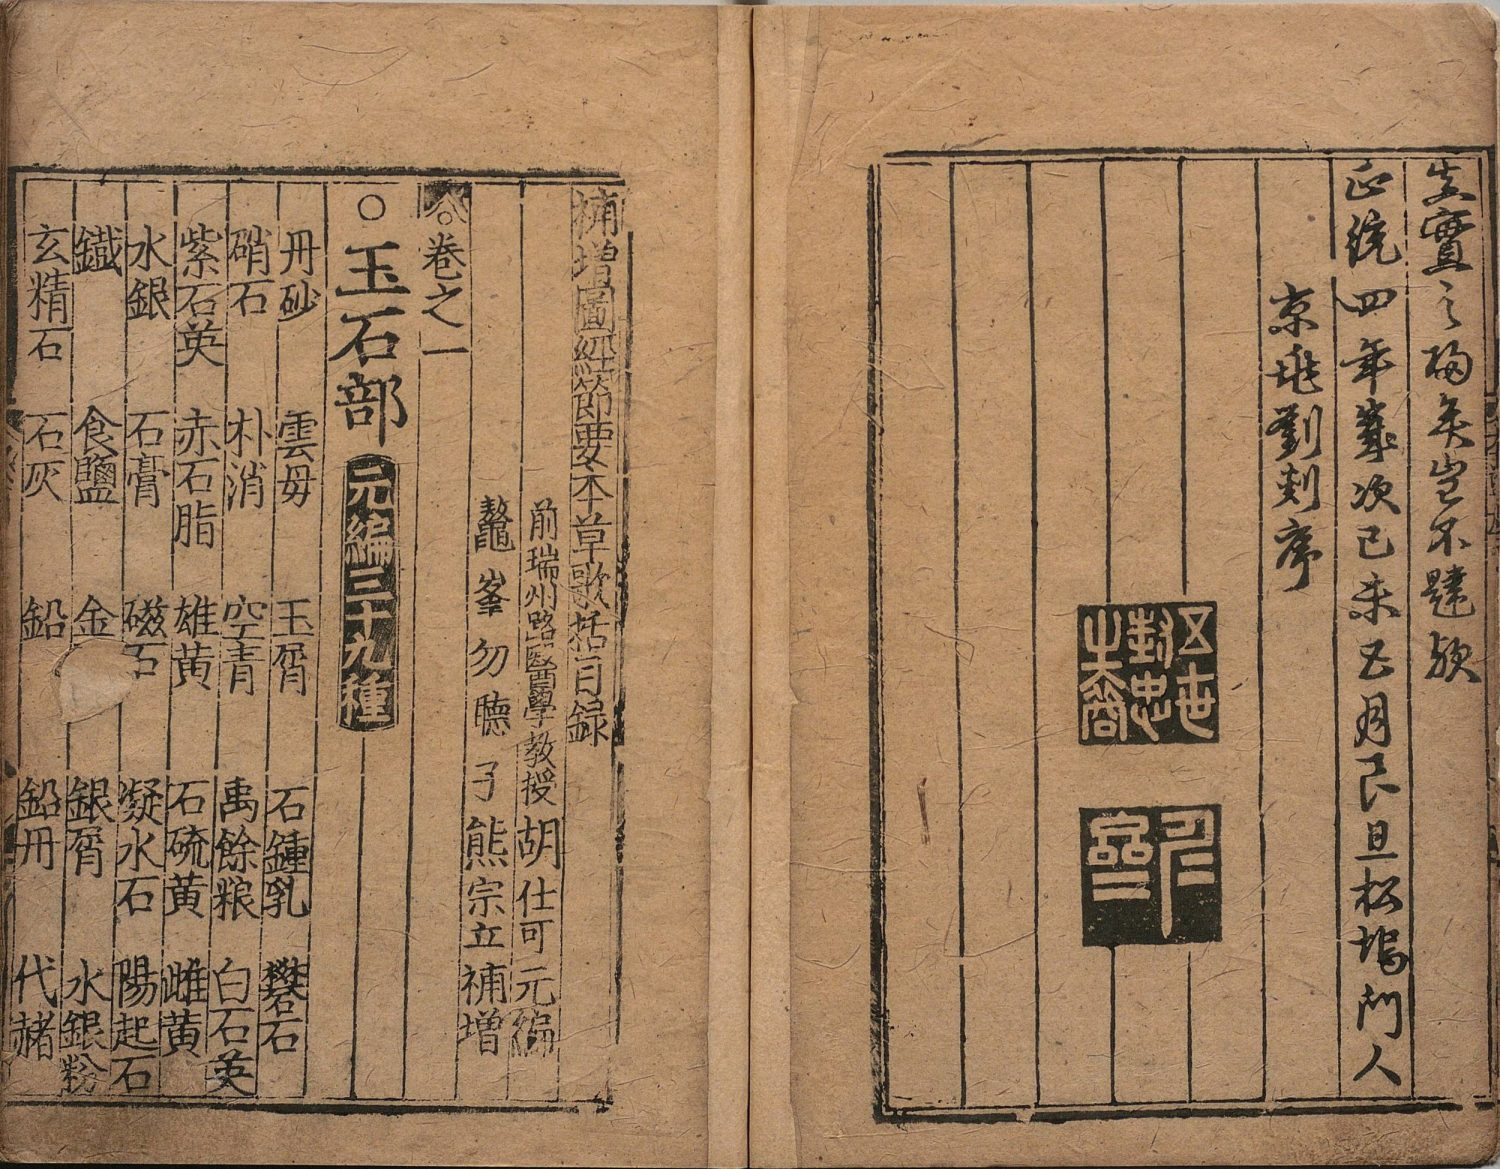 矣豈不韙歟
正統四年歲次己未五月良旦松塢門人
京兆劉剡序
五世封忠之裔
補增圖經節要本草歌括目録
前瑞州路醫學教授胡仕可元編
鼇峯勿聽子熊宗立補增
卷之一
○玉石部 元編三十九種
丹砂 雲母 玉屑 石鍾乳 礬石
硝石 朴消 空青 禹餘粮 白石英
紫石英 赤石脂 雄黄 石硫黄 雌黄
水銀 石膏 磁石 凝水石 陽起石
鐵 食鹽 金 銀屑 水銀粉
玄精石 石灰 鉛 鉛丹 代赭